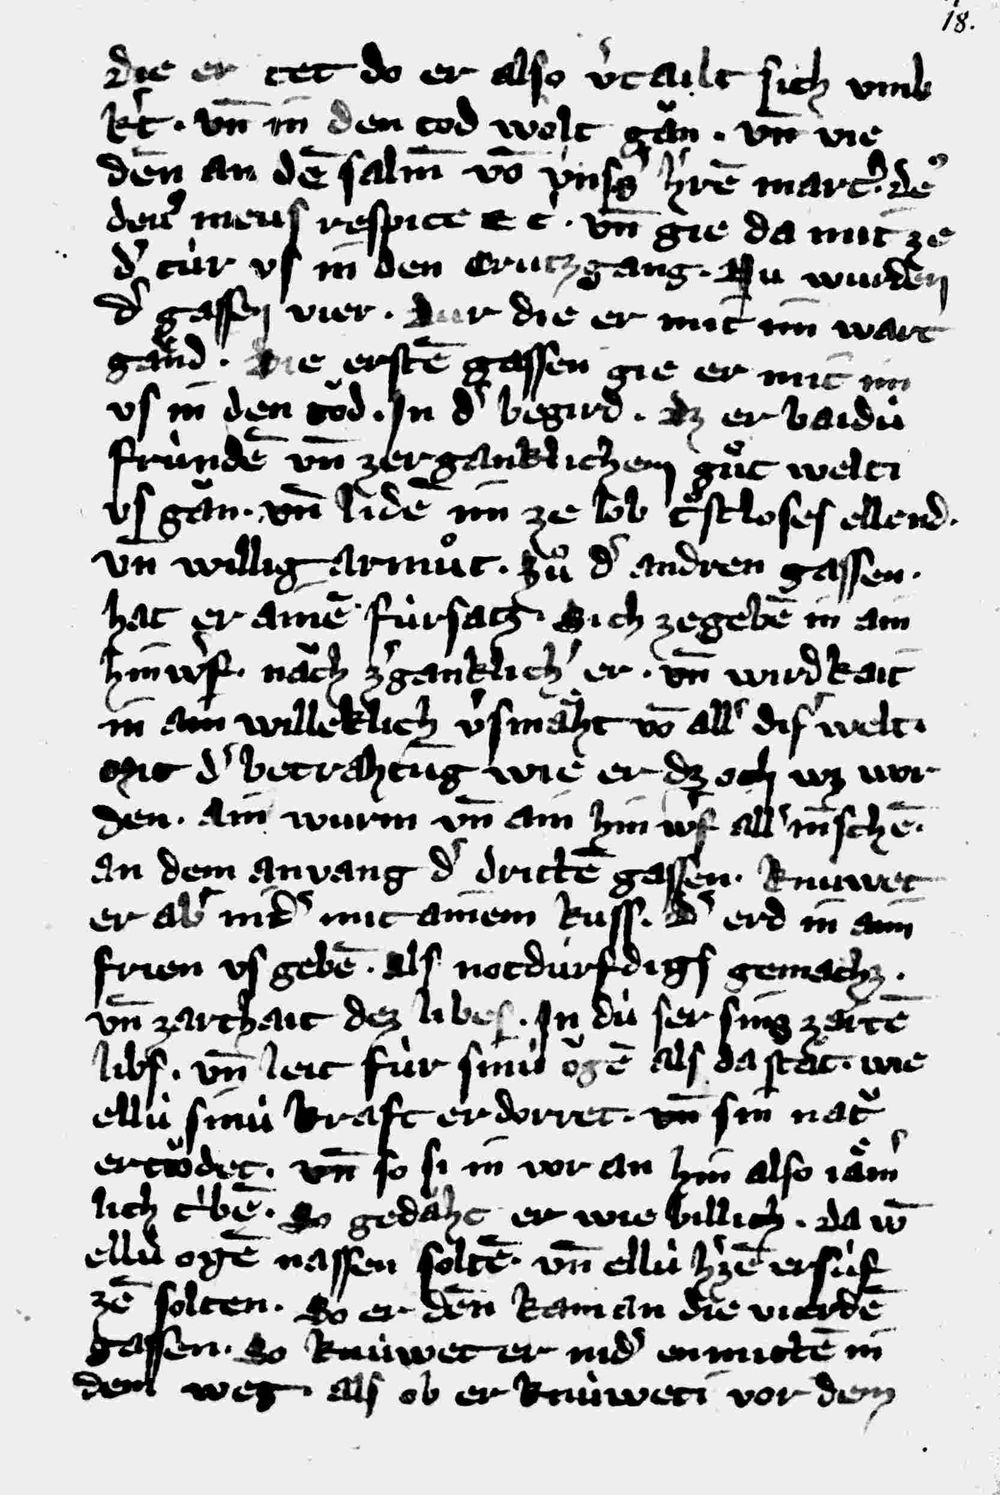 18.
die er tet do er also v᾽tailt sich vmb
k᾽t. vn̄ in den tod wolt găn. vn̄ vie
den an dē salm vō vnsṡ h᾽rē mart᾽. de᾽
deu᾽ meus respice ⁊ c᾽. vn̄ gie da mit ze
d᾽ tu̇r vs in den Crutzgang. Nu wurden
d᾽ gassen vier. Dur die er mit im wart
gănd. Die erstē gassen gie er mit im
vs in den tŏd. In d᾽ begird. dz er baidu̇
fru̇ndē vn̄ zerganklichem gůt welti
vs găn. vn̄ lidē im ze lob t᾽ŏstloses ellend.
vn̄ willig armůt. Zů d᾽ andren gassen.
hat er ainē fu̇rsatz. Sich zegebē in ain
hinw᾽f. năch z᾽ganklich᾽ er. vn̄ wirdkait
in ain willeklich v᾽smăht vō all᾽ dis᾽ welt.
Mit d᾽ betrahtūg wie er dz och wz wor
den. ain wurm vn̄ ain hin w᾽f all᾽ m̄schē.
an dem anvang d᾽ drittē gassen. Knuwet
er ab᾽ nid᾽ mit ainem kuss. D᾽ erd in aim
frien vs gebē. als notdu̇rfdigs gemachz.
vn̄ zarthait dez libes. In du̇ ser sins zartē
libs. vn̄ leit fu̇r sinu̇ ŏgē als da stăt. wie
ellu̇ sinu̇ kraft er dorret. vn̄ sin nat᾽
ertŏdet. vn̄ so si in vor an hin also iăm᾽
lich t᾽bē. So gedăht er wie billich. da w̄
ellu̇ ogē nassen soltē. vn̄ ellu̇ h᾽zē ersu̇f
zē solten. So er den kam an die vierdē
gassen. So knu̇wet er nid᾽ enmittē in
dem weg. als ob er knu̇weti vor dem